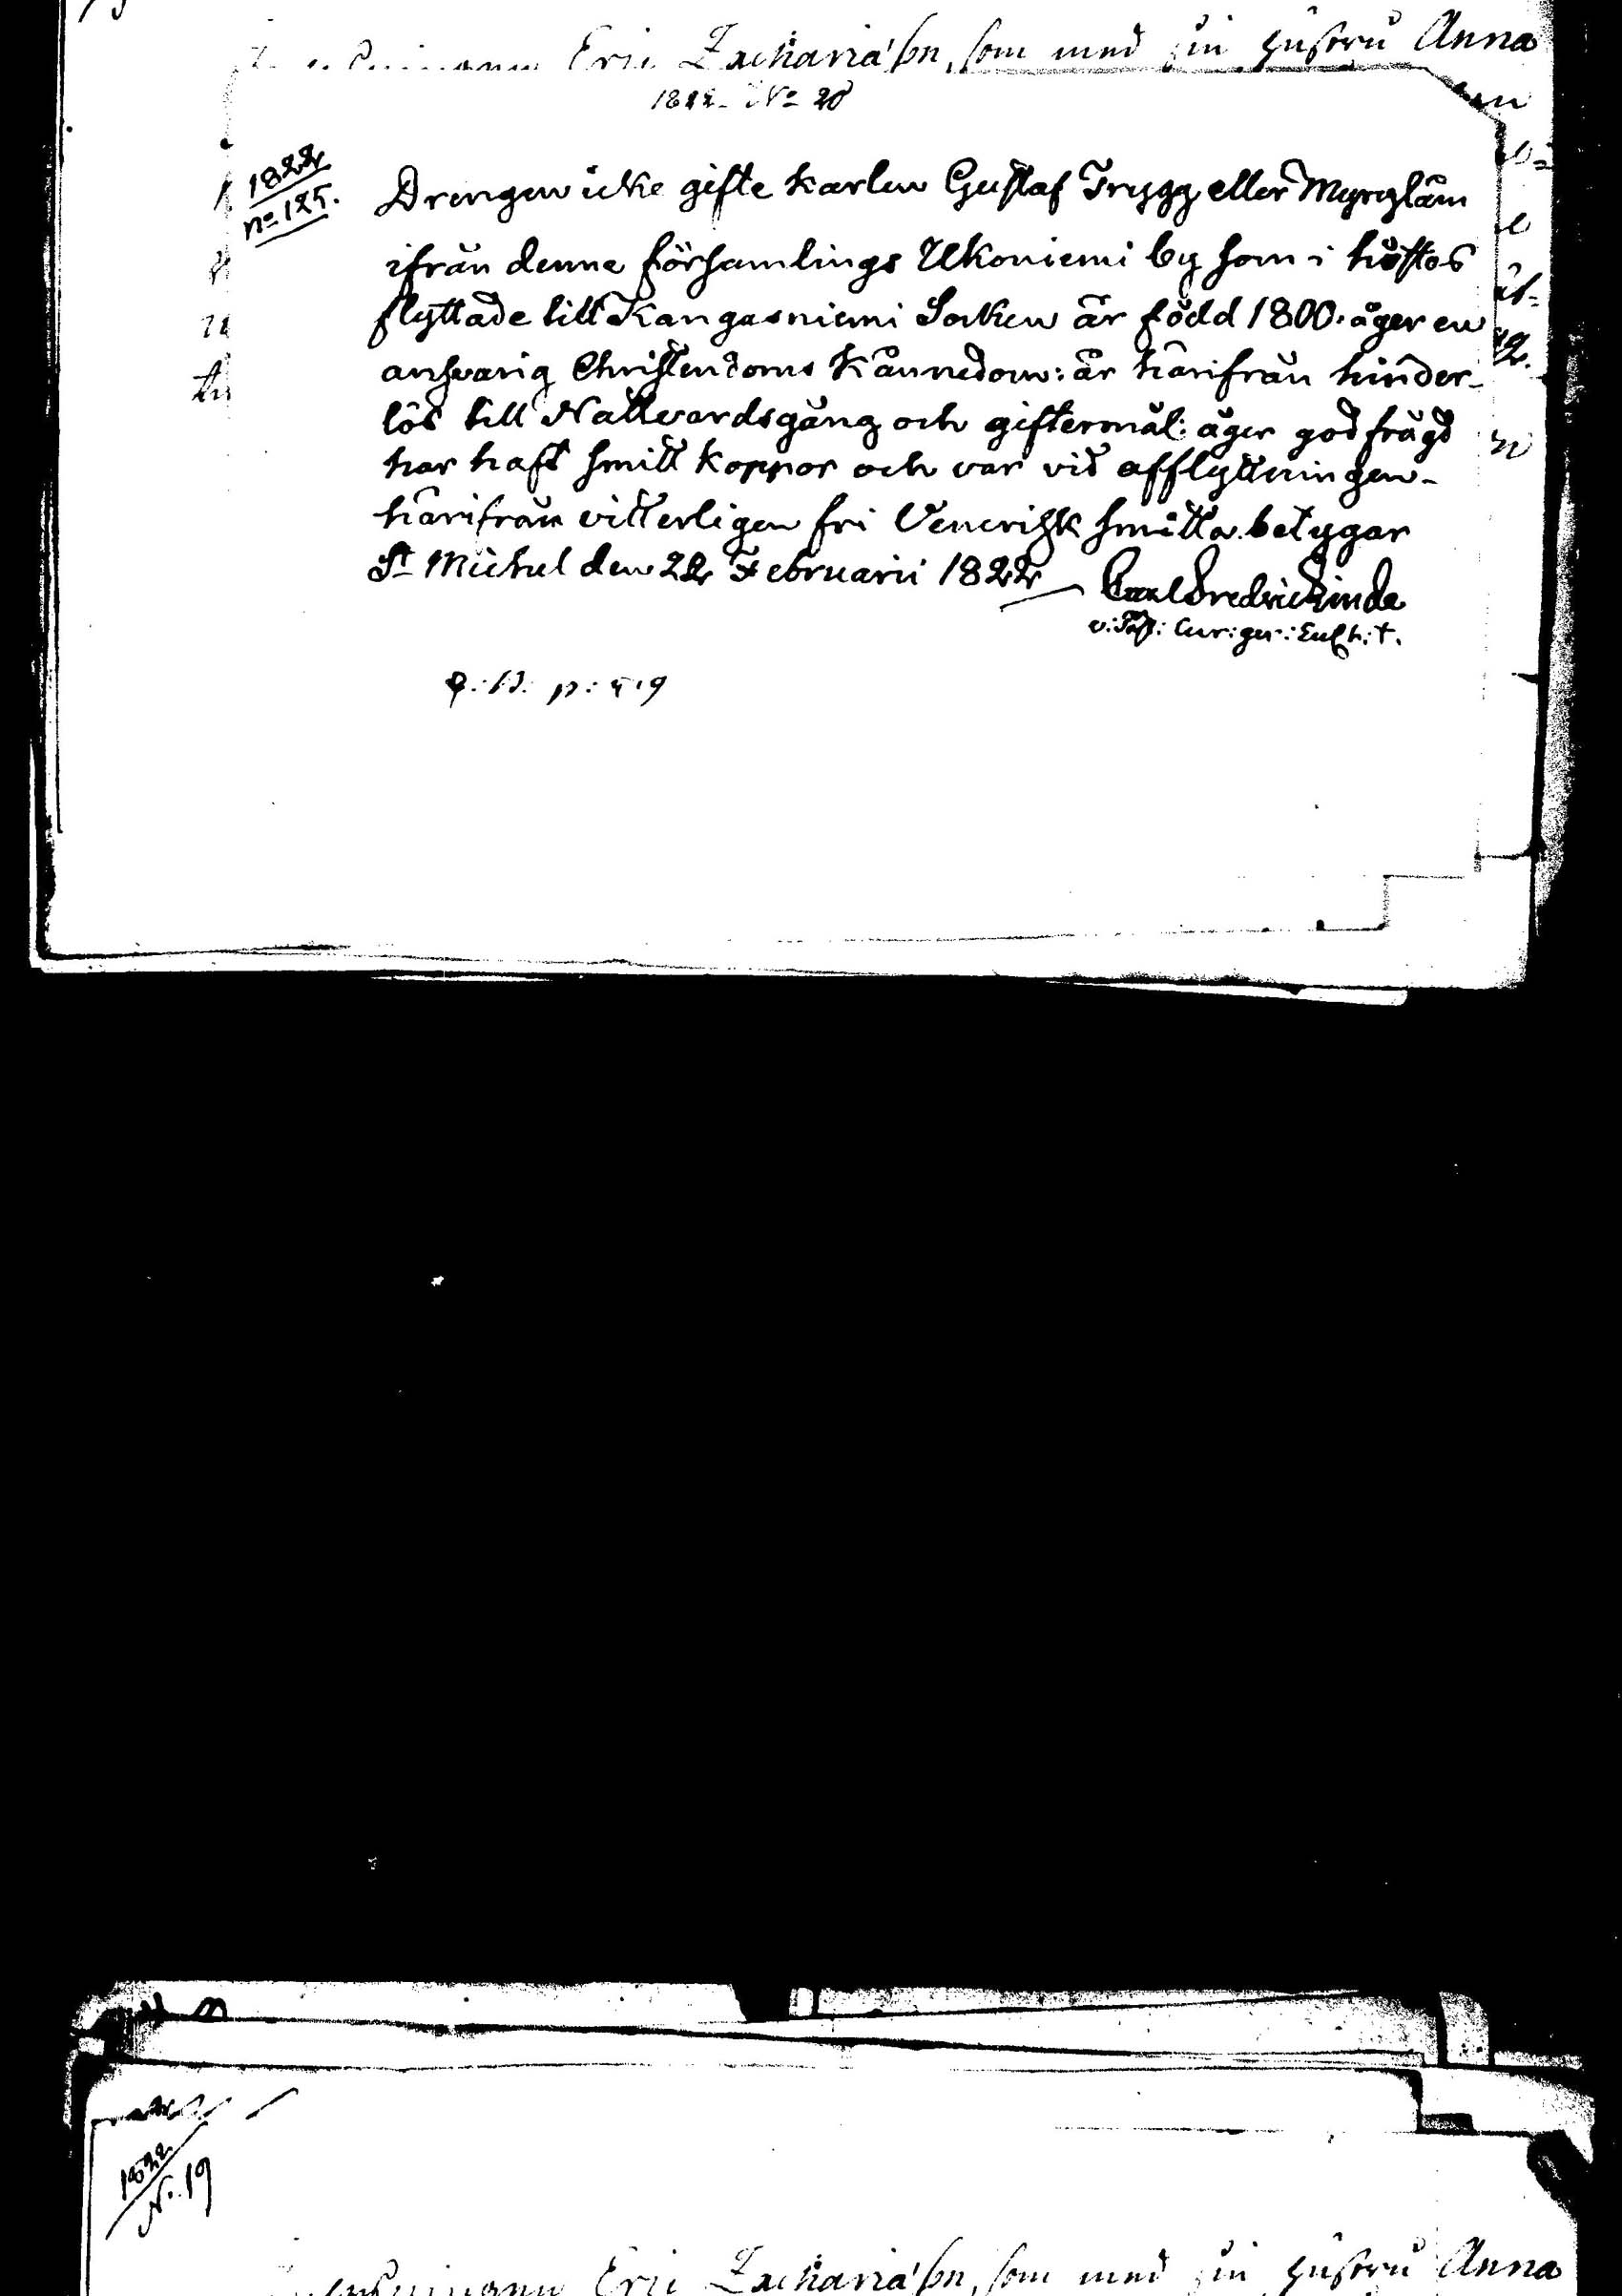 Eric Zachariasßn, som med sin hustru Anna
1822. No 20
1822
no 125.
Drengen icke gifte karlen Gustaf Trygg eller
ifrån denne församlings Ukoniemi by som i höstas
flyttade till Kangasniemi Socken är född 1800. äger en
ansvarig Christendoms kännedom: är härifrån hinder-
lös till Nattvardsgång och giftermål: äger god frägd
har haft smitt koppor och var vid afflyttningen
härifrån vitterligen fri Venerisk smitta. betygar
St Michel den 22 Februarii 1822
Carl Fredric Linda
v: Past: Cur: ger:
p:
1822
N. 19
Eric Zachariasßn, som med sin hustru Anna